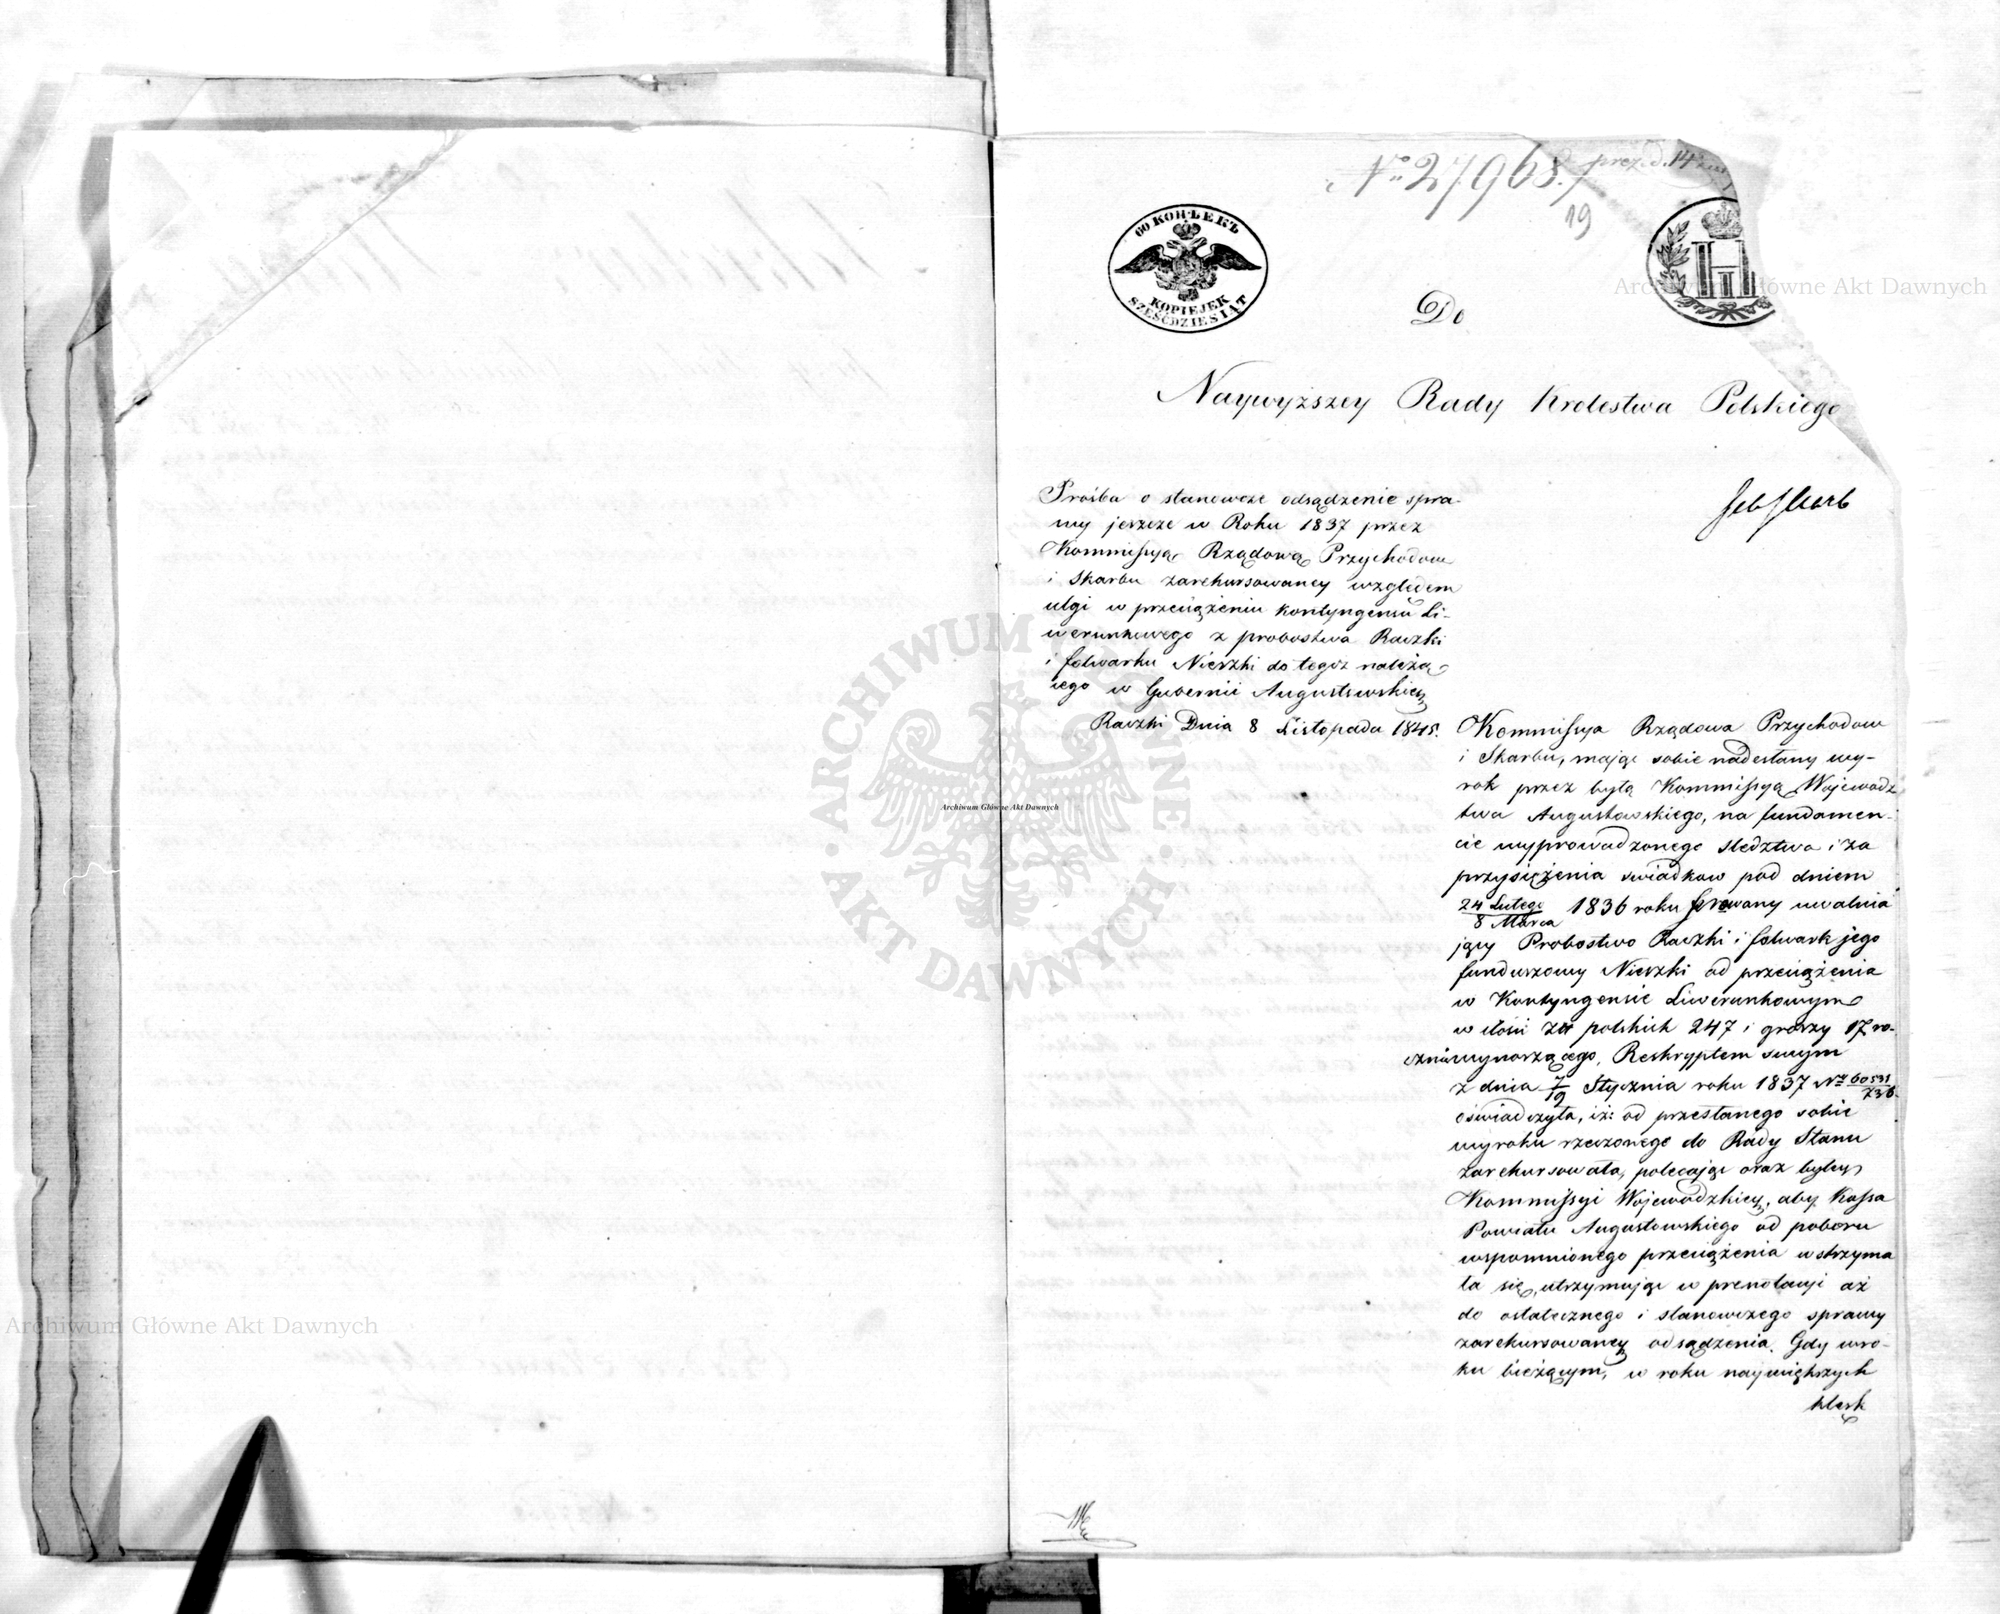 No 27968.
prez. d. 14
19
60 КОПѢЕКЪ
KOPIEJEK
SZEŚCDZIESIĄT
Do
Naywyższey Rady Krolestwa Polskiego
Prośba o stanowcze odsądzenie spra-
wy jeszcze w Roku 1837 przez
Kommissyą Rządową Przychodow
i Skarbu zarekursowaney względem
ulgi w przeciążeniu kontyngensu Li-
werunkowego z probostwa Raczki
i folwarku Nieszki do tegoż należą-
cego w Gubernii Augustowskiey
Raczki Dnia 8 Listopada 1845.
Kommissya Rządowa Przychodow
i Skarbu, mając sobie nadesłany wy-
rok przez byłą Kommissyą Wojewodz
twa Augustowskiego, na fundamen-
cie wyprowadzonego sledztwa i za
przysiężenia swiadkow pod dniem
24 Lutego
8 Marca
1836 roku ferowany uwalnia
jący Probostwo Raczki i folwark jego
funduszowy Nieszki od przeciążenia
w Kontyngensie Liwerunkowym
w ilości Złł polskich 247 i groszy 17 ro-
cznie wynoszącego, Reskryptem swym
z dnia 7/19 Stycznia roku 1837 No 60531/736
oświadczyła, iż: od przesłanego sobie
wyroku rzeczonego do Rady Stanu
zarekursowała, polecając oraz byłey
Kommissyi Wojewodzkiey, aby Kassa
Powiatu Augustowskiego od poboru
wspomnionego przeciążenia wstrzyma
ła się, utrzymując w prenotacyi aż
do ostatecznego i stanowczego sprawy
zarekursowaney odsądzenia. Gdy w ro-
ku bieżącym, w roku największych
klęsk
Archiwum Główne Akt Dawnych
Archiwum Główne Akt Dawnych
Archiwum Główne Akt Dawnych
ARCHIWUM GŁÓWNE AKT DAWNYCH